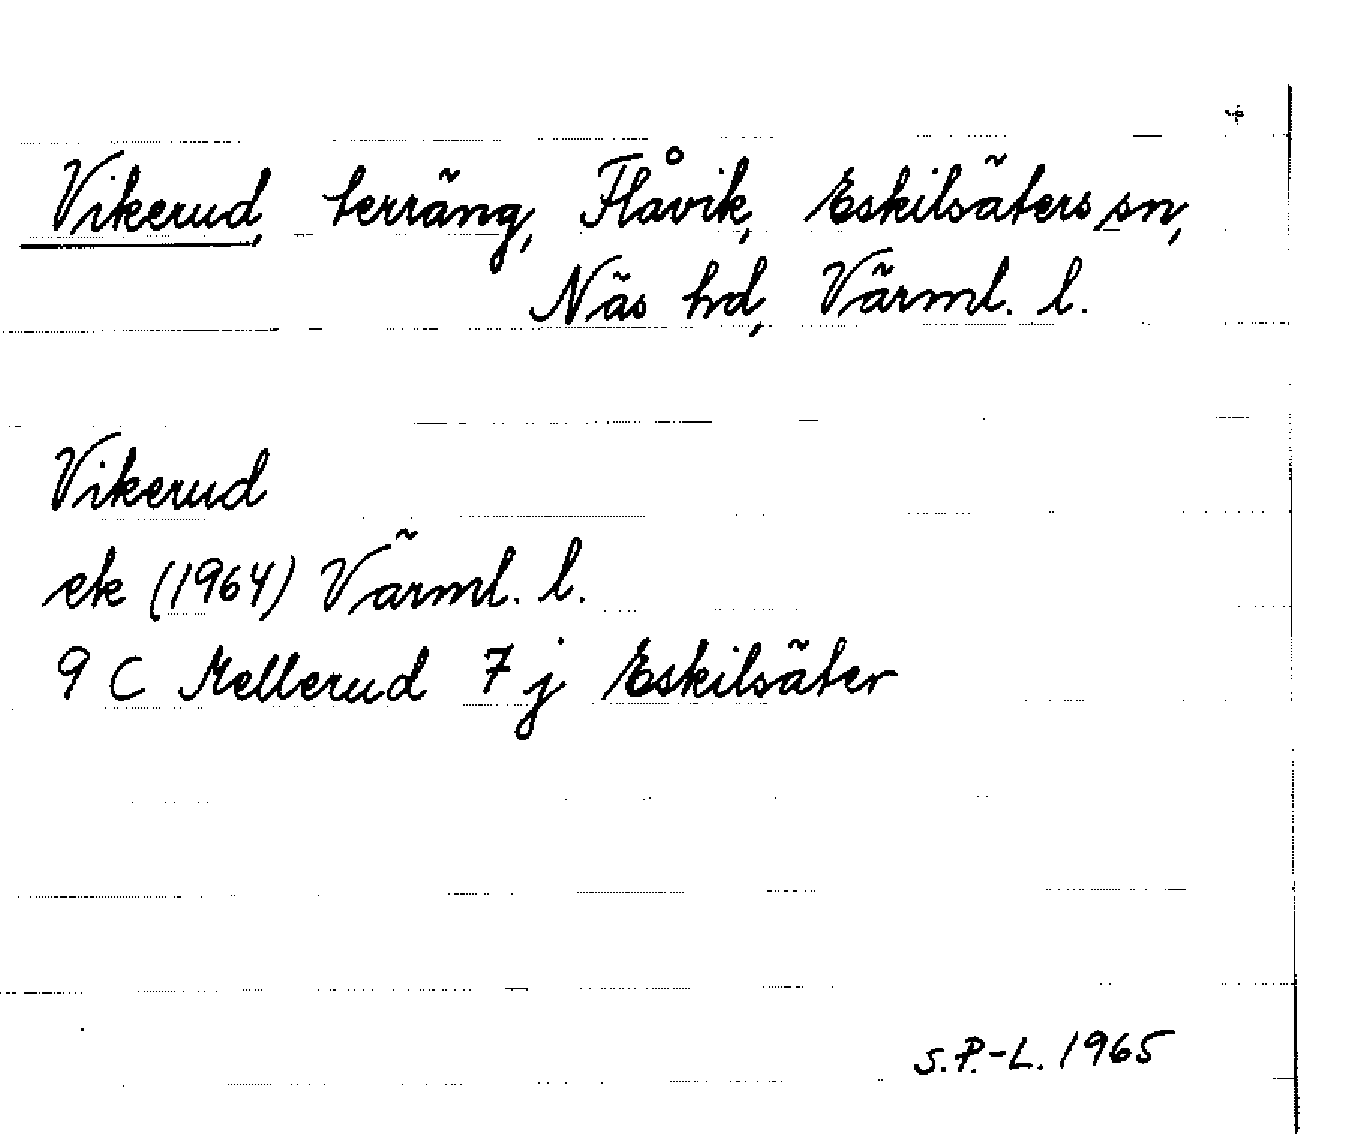 Vikerud, terräng, Flåvik, Eskilsäters sn,
Näs hd, Värml. l.
Vikerud
ek (1964) Värml. l.
9 C Mellerud 7 j Eskilsäter
S.P.-L. 1965